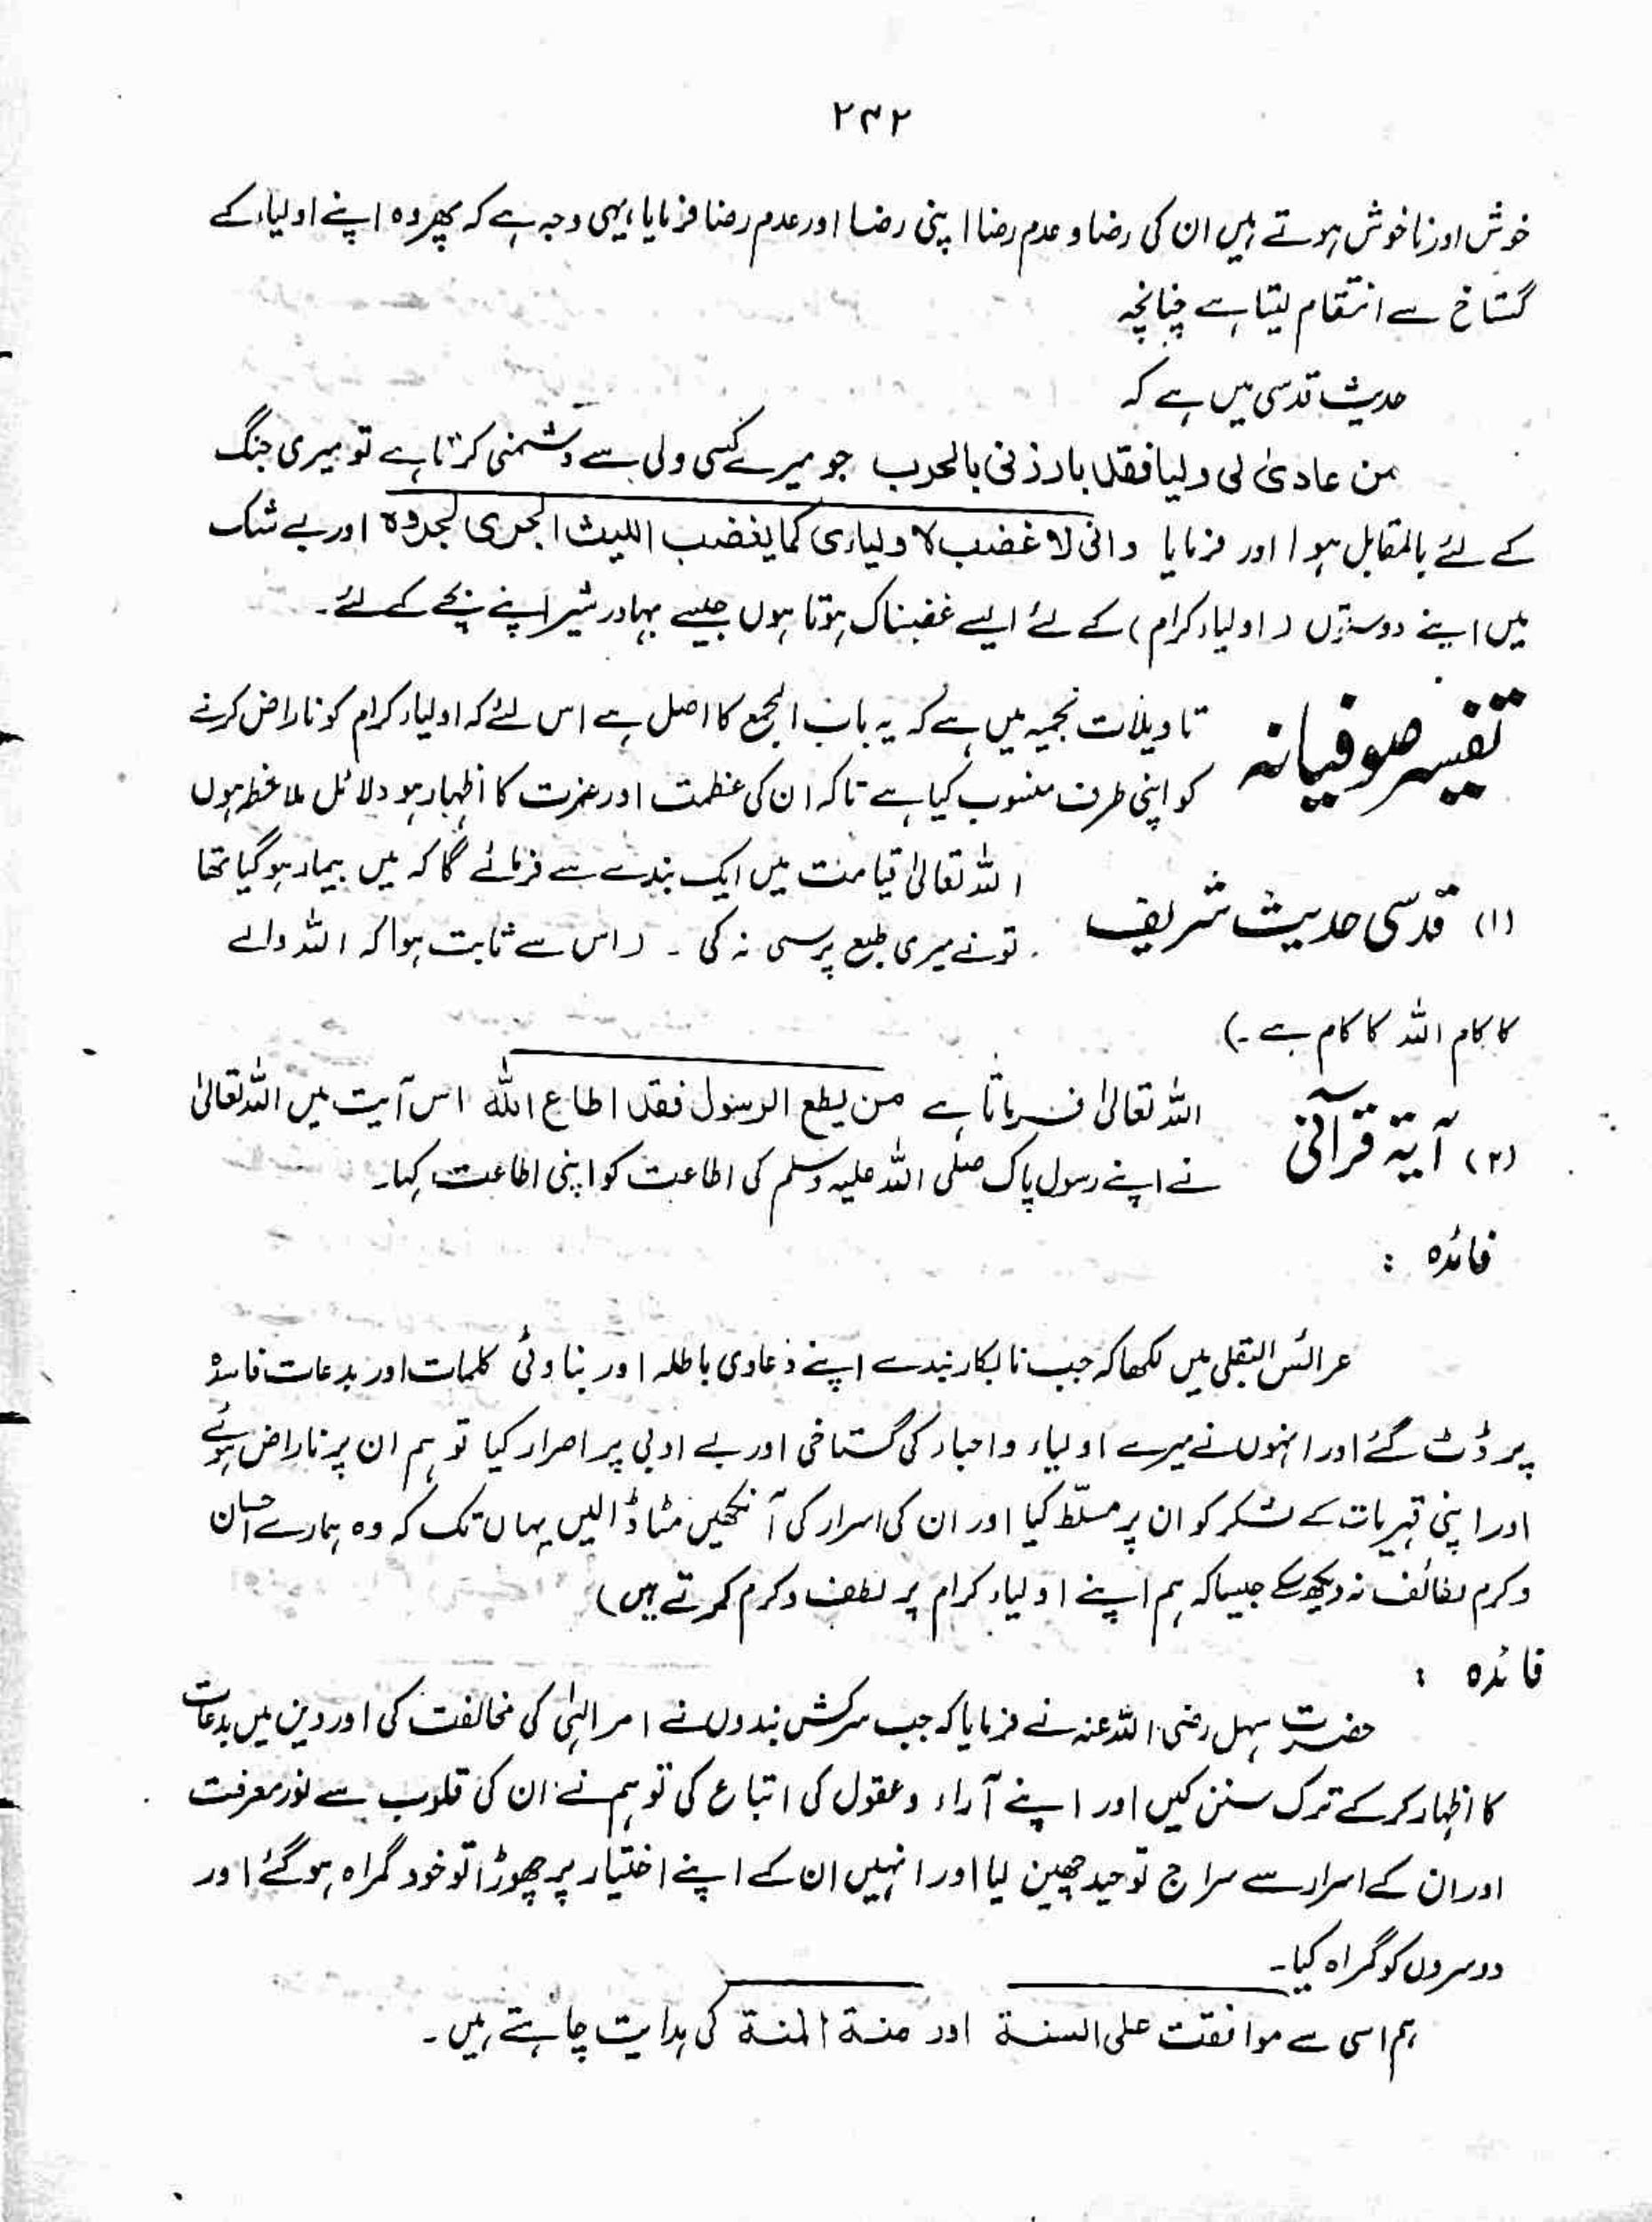 ۲۳۲
خوش اور ناخوش ہوتے ہیں ان کی رضا و عدم رضا اپنی رضا اور عدم رضا فرمایا، یہی وجہ ہے کہ پھر وہ اپنے اولیاء کے
گستاخ سے انتقام لیتا ہے چنانچہ
حدیث قدسی میں ہے کہ
من عادیٰ لی ولیا فقد بارزنی بالحرب جو میرے کسی ولی سے دشمنی کرتا ہے تو میری جنگ
کے لئے بالمقابل ہوا اور فرمایا وانی لا غضب لا ولیاءی کما یغضب اللیث الجری لجروہ اور بے شک
میں اپنے دوستوں (اولیاء کرام) کے لئے ایسے غضبناک ہوتا ہوں جیسے بہادر شیر اپنے بچے کے لئے۔
تفسیر صوفیانہ تاویلات نجمیہ میں ہے کہ یہ باب الجمع کا اصل ہے اس لئے کہ اولیاء کرام کو ناراض کرنے
کو اپنی طرف منسوب کیا ہے تاکہ ان کی عظمت اور عزت کا اظہار ہو دلائل ملاحظہ ہوں
(۱) قدسی حدیث شریف اللہ تعالیٰ قیامت میں ایک بندے سے فرمائے گا کہ میں بیمار ہو گیا تھا
تو نے میری طبع پرسی نہ کی ۔ (اس سے ثابت ہوا کہ اللہ والے
کا کام اللہ کا کام ہے ۔)
(۲) آیۃ قرآنی اللہ تعالیٰ فرماتا ہے من یطع الرسول فقد اطاع اللہ اس آیت میں اللہ تعالیٰ
نے اپنے رسول پاک صلی اللہ علیہ وسلم کی اطاعت کو اپنی اطاعت کہا۔
فائدہ :
عرائس البقلی میں لکھا کہ جب نابکار بندے اپنے دعاوی باطلہ اور بناوٹی کلمات اور بدعات فاسدہ
پر ڈٹ گئے اور انہوں نے میرے اولیاء و احباء کی گستاخی اور بے ادبی پر اصرار کیا تو ہم ان پر ناراض ہوئے
اور اپنی قہریات کے لشکر کو ان پر مسلّط کیا اور ان کی اسرار کی آنکھیں مٹا ڈالیں یہاں تک کہ وہ ہمارے احسان
و کرم لطائف نہ دیکھ سکے جیسا کہ ہم اپنے اولیاء کرام پر لطف و کرم کرتے ہیں)
فائدہ :
حضرت سہل رضی اللہ عنہ نے فرمایا کہ جب سرکش بندوں نے امر الٰہی کی مخالفت کی اور دین میں بدعات
کا اظہار کر کے ترک سنن کیں اور اپنے آراء و عقول کی اتباع کی تو ہم نے ان کی قلوب سے نور معرفت
اور ان کے اسرار سے سراج توحید چھین لیا اور انہیں ان کے اپنے اختیار پر چھوڑا تو خود گمراہ ہو گئے اور
دوسروں کو گمراہ کیا۔
ہم اسی سے موافقت علی السنۃ اور منۃ المنۃ کی ہدایت چاہتے ہیں ۔